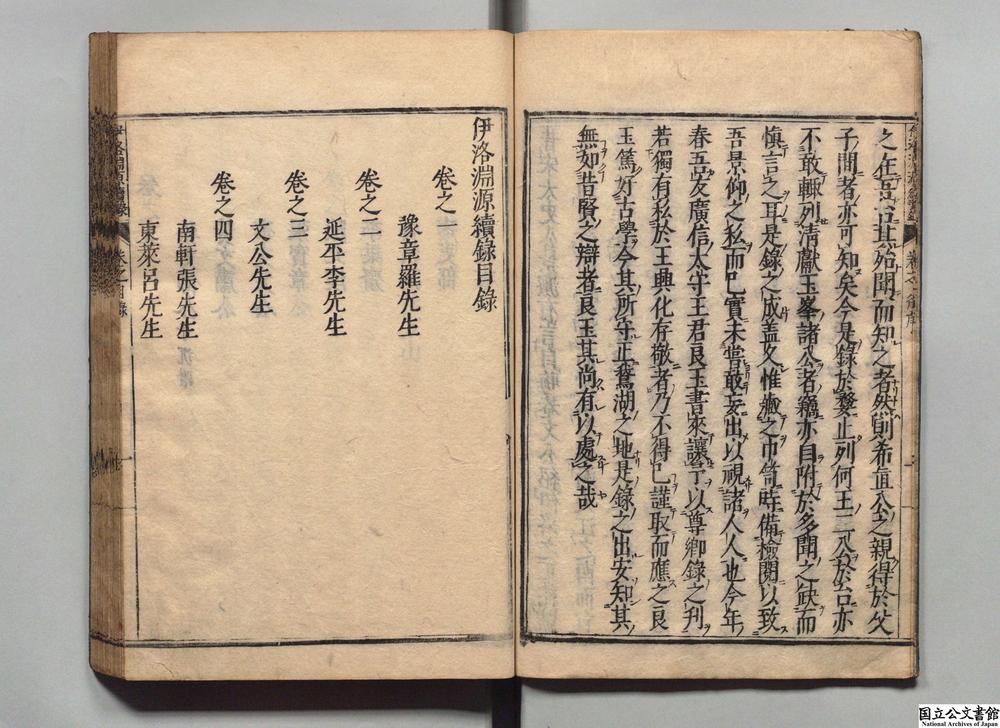 之在吾台其殆聞而知之者然則希直公之親得於父
子間者亦可知矣今是錄於婺止列何王二公於台亦
不敢輒列清獻玉峯諸公者竊亦自附於多聞之缺而
慎言之耳是錄之成蓋久惟藏之巾笥時備檢閱以致
吾景仰之私而巳實未嘗敢妄出以視諸人人也今年
春吾友廣信太守王君良玉書來讓予以尊鄉錄之刊
若獨有私於王興化存敬者乃不得巳謹取而應之良
玉篤好古學今其所守正鵞湖之地是錄之出安知其
無如昔賢之辯者良玉其尚有以處之哉
伊洛淵源續錄目錄
卷之一
豫章羅先生
卷之二
延平李先生
卷之三
文公先生
卷之四
南軒張先生
東萊呂先生
国立公文書館
National Archives of Japan